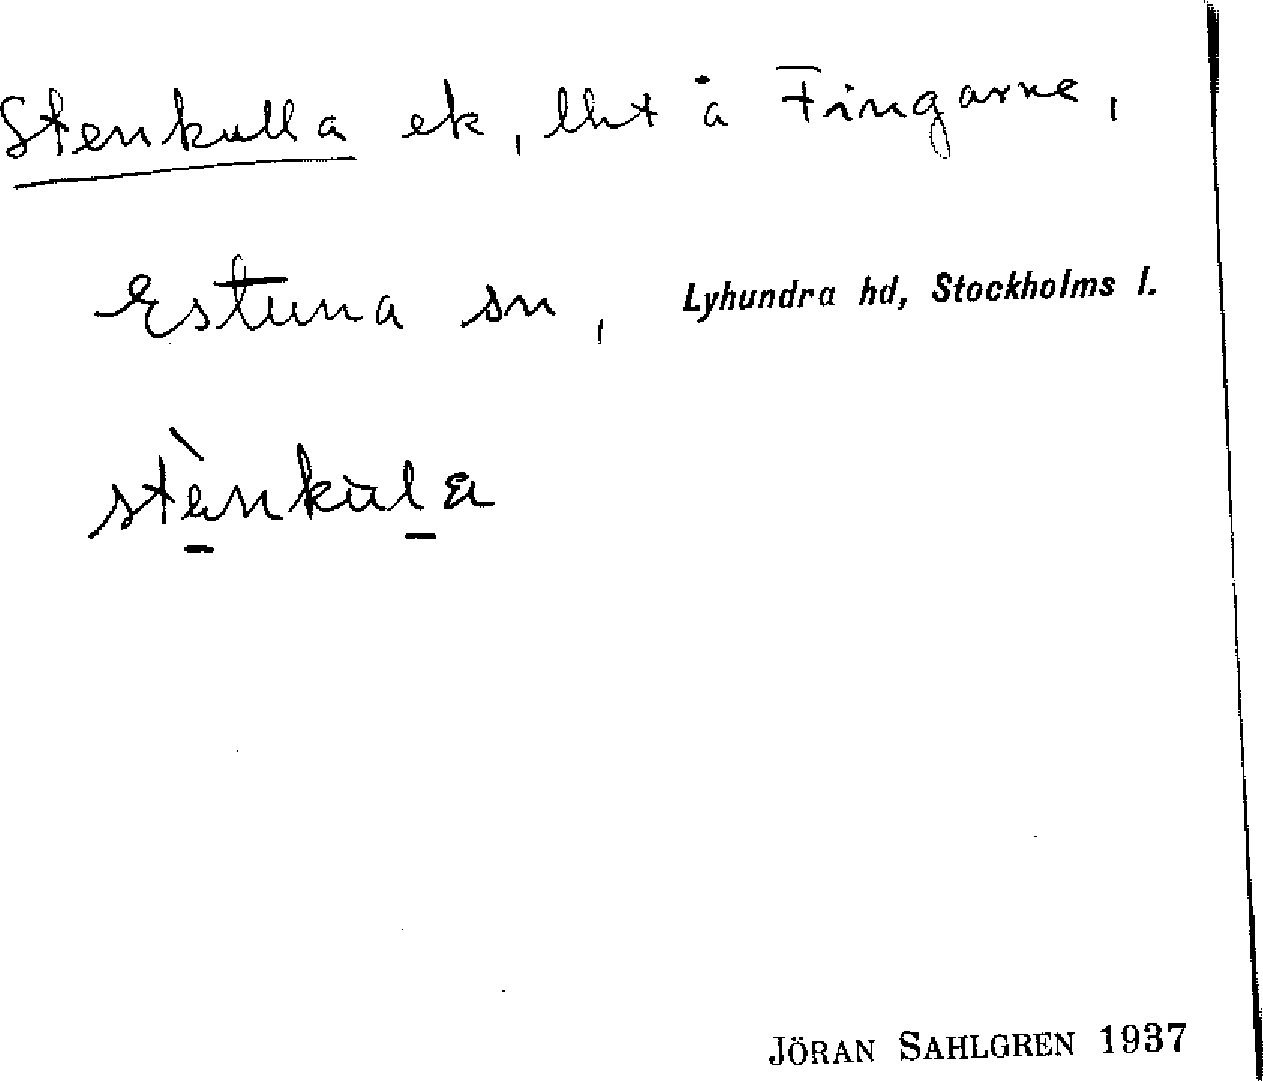 Stenkulla ek, lht å Fingarne,
Estuna sn, Lyhundra hd, Stockholms l.
stènkùla
JÖRAN SAHLGREN 1937